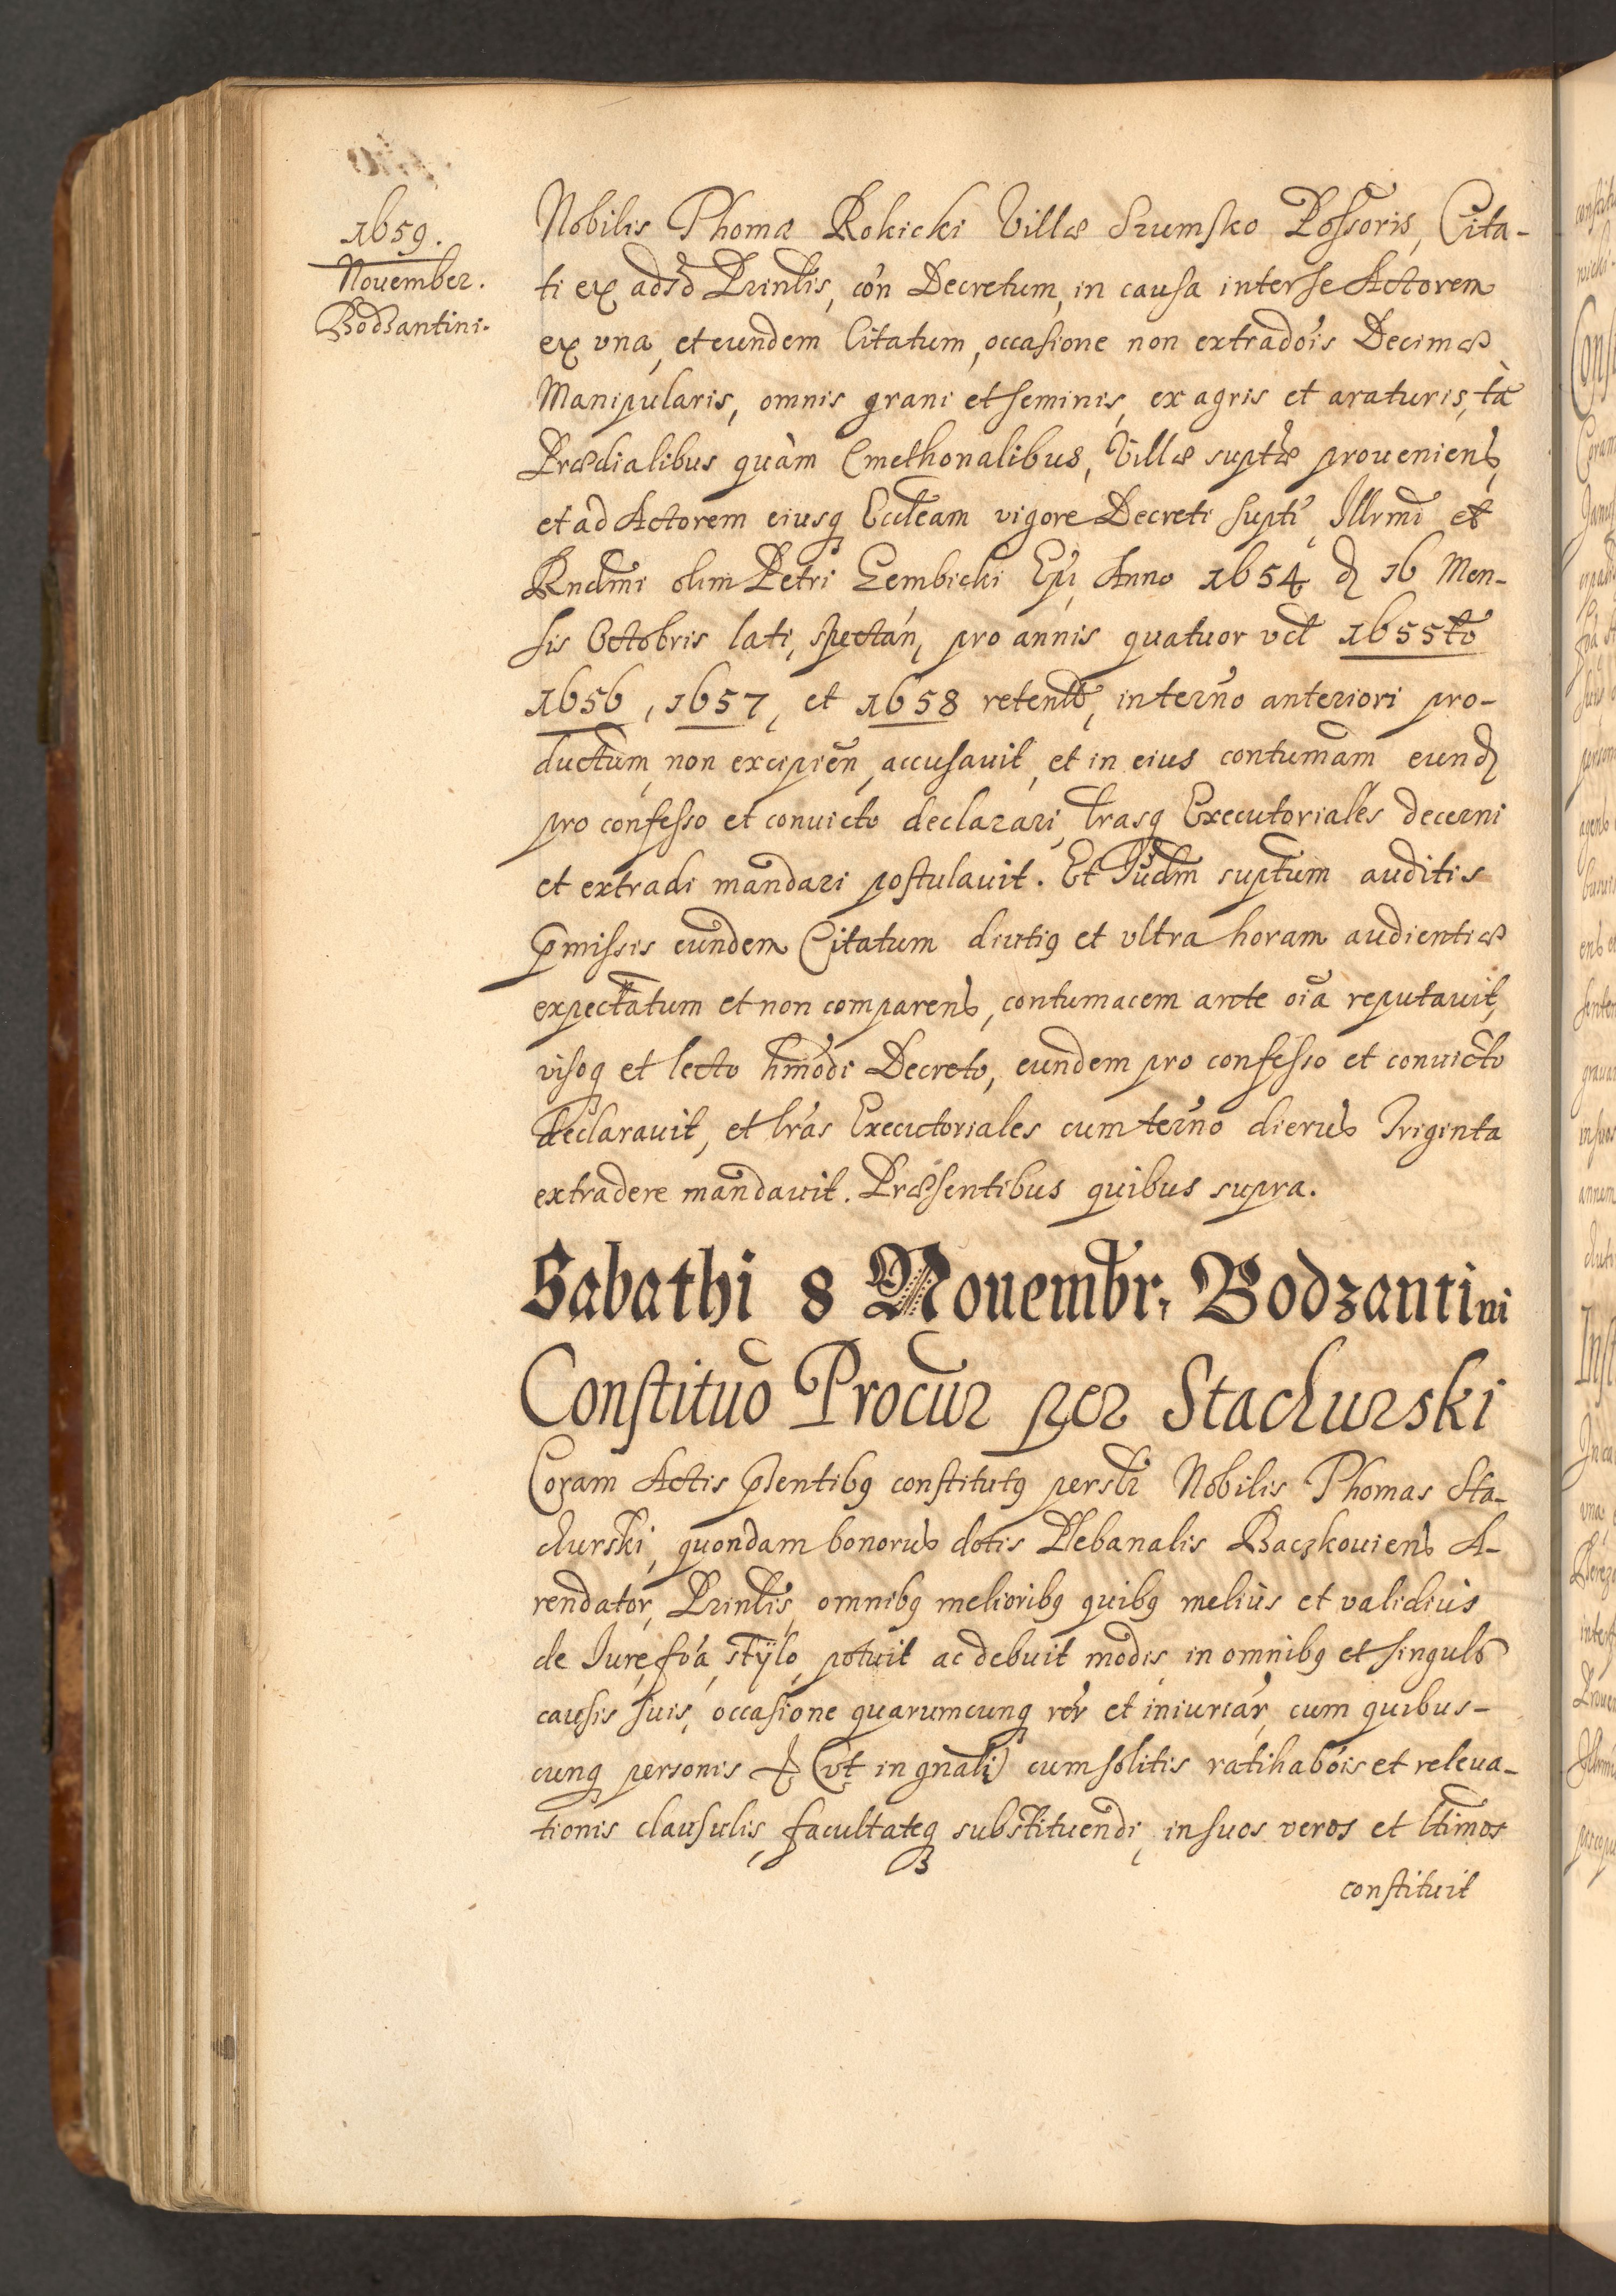 1659.
November.
Bodzantini.
Nobilis Thoma Rokicki Villæ Szumsko Possoris, Cita-
ti ex adsđ Prinlis, cón Decretum, in causa inter se Actorem
ex vna, et eundem Citatum, occasione non extradóis Decimæ
Manipularis, omnis grani et seminis, ex agris et araturis, tã
Prædialibus quàm Cmethonalibus, Villæ suptæ proueniens,
et ad Actorem eiusq Eccleam vigore Decreti supti Illrmi et
Rndmi olim Petri Gembicki Epi Anno 1654 d 16 Men-
sis Octobris lati, spectán, pro annis quatuor vct 1655to
1656, 1657, et 1658 retent, in terno anteriori pro-
ductum, non excipien, accusauit, et in eius contumam eund
pro confesso et conuicto declarari, lrasq Executoriales decerni
et extradi mandari postulauit. Et Judm suptum auditis
pmissis eundem Citatum diutig et vltra horam audientiæ
expectatum et non comparens, contumacem ante oia reputauit,
visoq et lecto hmodi Decreto, eundem pro confesso et conuicto
declarauit, et lras Executoriales cum terno dierus Triginta
extradere mandauit. Præsentibus quibus supra.
Sabathi 8 Nouembr. Bodzantini
Constituo Procur per Stachurski
Coram Actis psentibg constitutg perslr Nobilis Thomas Sta-
churski, quondam bonorus dotis Plebanalis Baczkouiens A-
rendator, Prinlis, omnibg melioribg quibg meliùs et validiùs
de Jure, foa, stÿlo, potuit ac debuit modis, in omnibg et singul
causis suis, occasione quarumcunq rer et iniuriar, cum quibus-
cunq personis & (vt in gnali) cum solitis ratihabóis et releua-
tionis clausulis, facultateq substituendi, in suos veros et ltimos
constituit